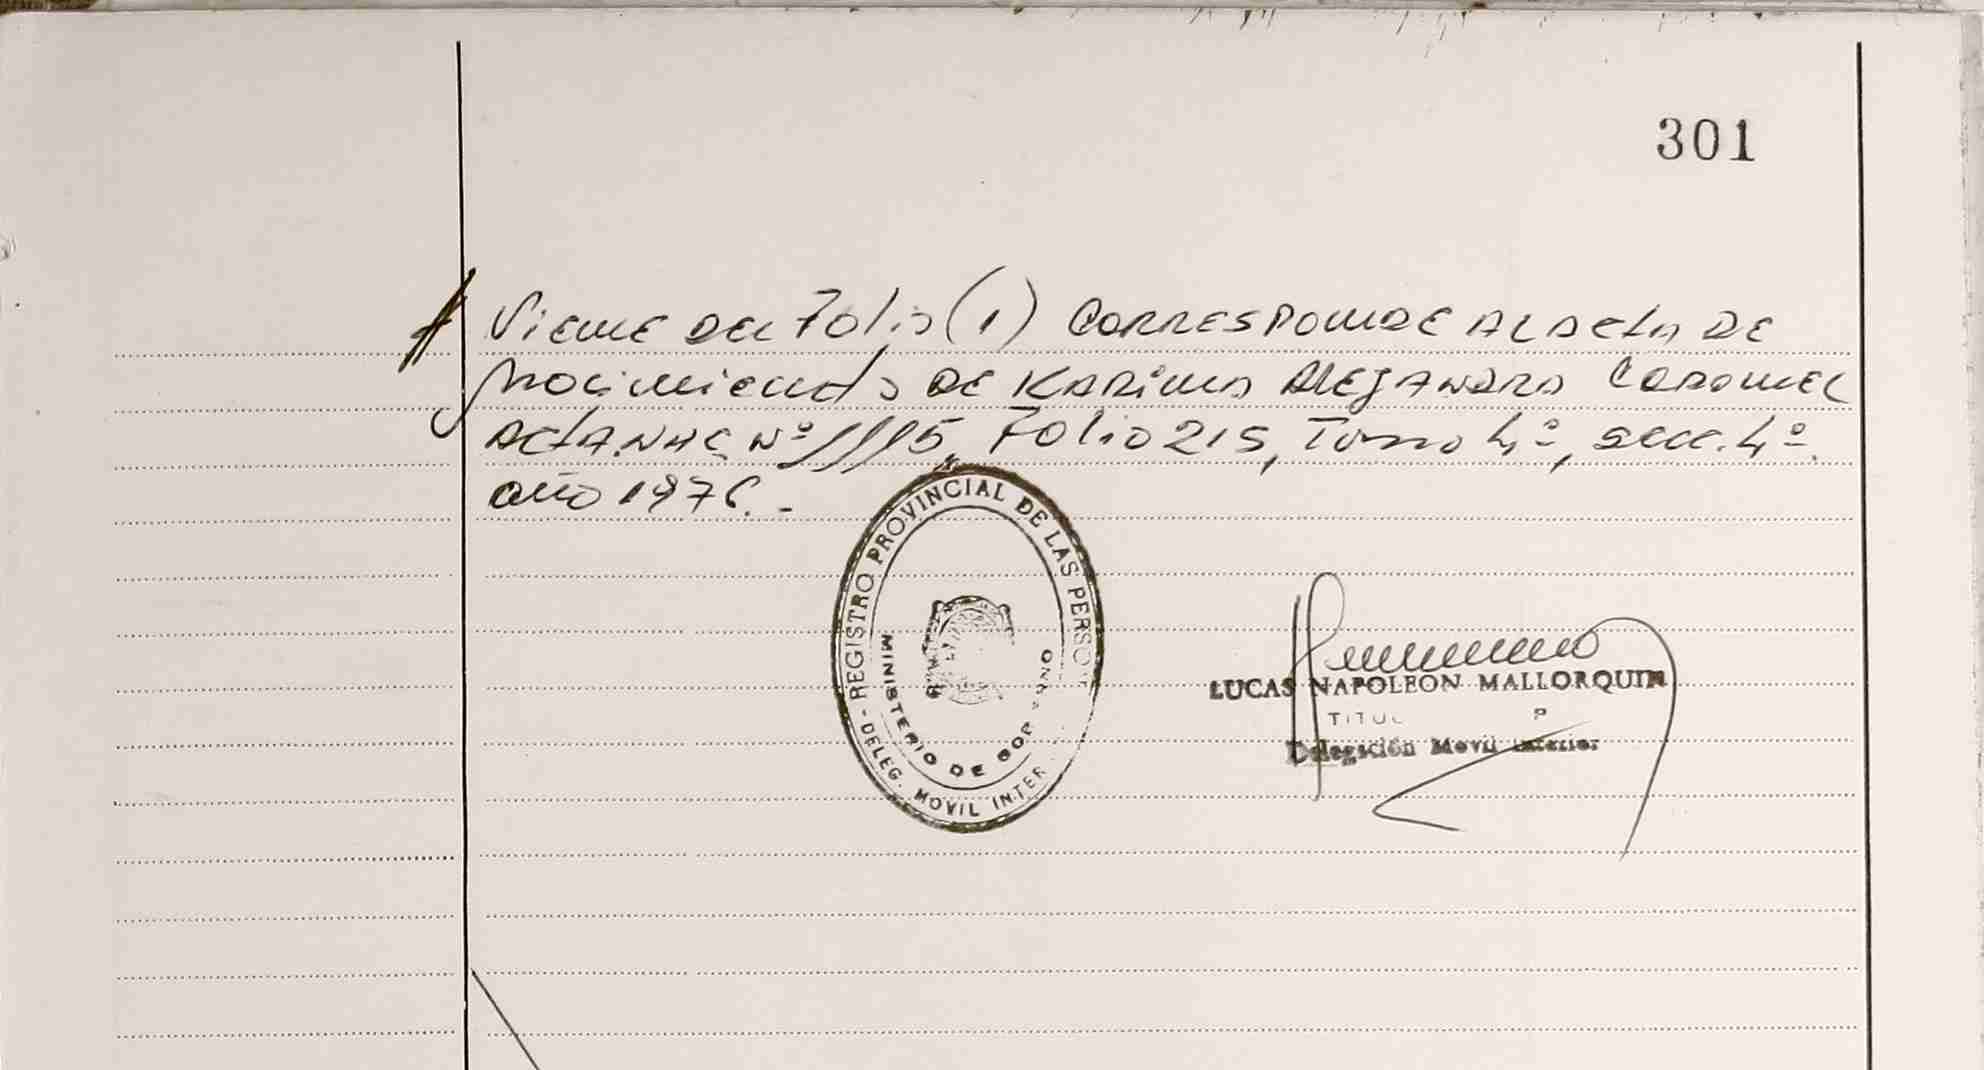 301
Viene del Folio (1) CORRESPONDE AL ACTA DE
Nacimiento DE KARINA ALEJANDRA CORONEL
ACTA.NAC. Nº 1115, Folio 215, Tomo 4º, secc. 4º.
año 1976.-
REGISTRO PROVINCIAL DE LAS PERSO
MINISTERIO DE GOB
- DELEG. MOVIL INTER
LUCAS NAPOLEON MALLORQUIN
TITUL
Delegación Movil Interior